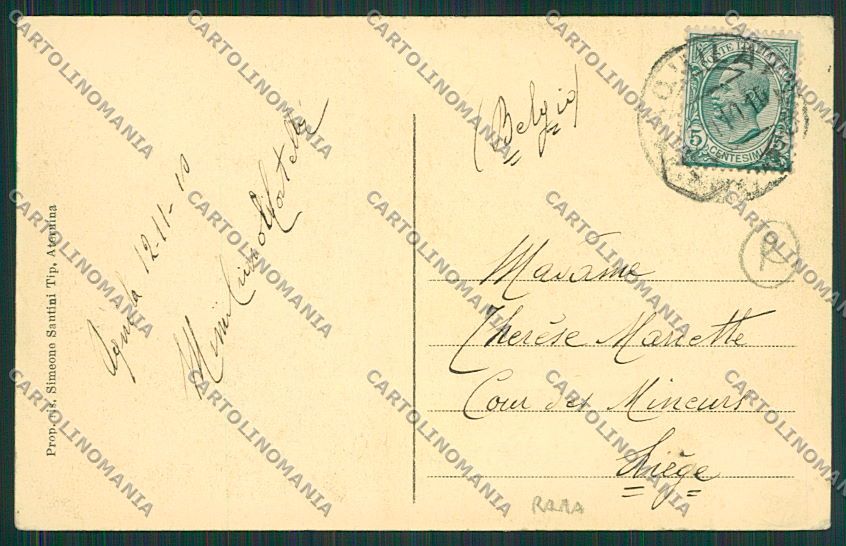 Prop. ris. Simeone Santini Tip. Aternina
Aquila 12-11-10
(Belgio)
POSTE ITALIANE
5 CENTESIMI 5
Madame
Thérèse Mariette
Cour des Mineurs
Liège
RARA
CARTOLINOMANIA